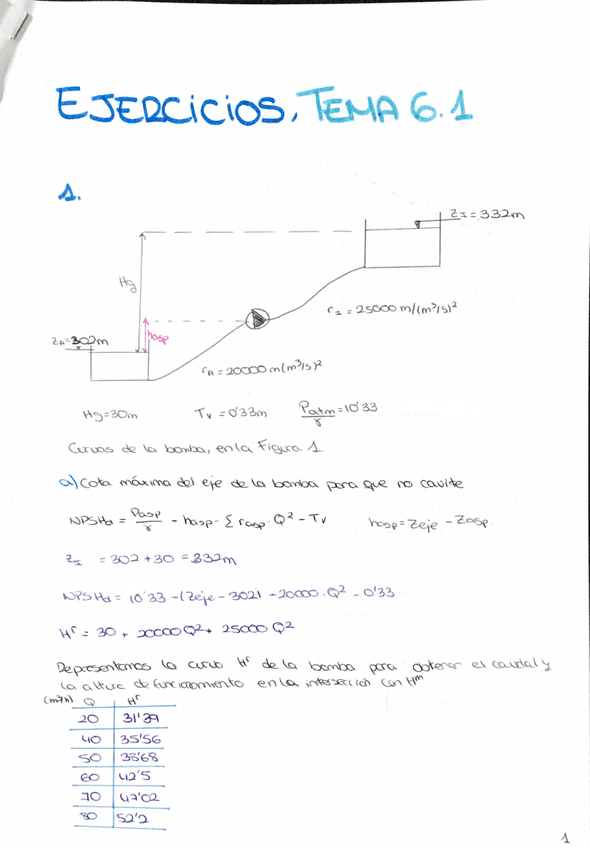 EJERCICIOS, TEMA 6.1
1.
ZI = 332m
Hg
rI = 25000 m/(m³/s)²
hasp
ZA=302m
rA = 20000 m(m³/s)²
Hg=30m Tv = 0'33m Patm/γ = 10'33
Curvas de la bomba, en la Figura 1
a) Cota máxima del eje de la bomba para que no cavite
NPSHd = Pasp/γ - hasp - Σ rasp · Q² - Tv hasp = Zeje - Zasp.
ZI = 302 + 30 = 332m
NPSHd = 10'33 - (Zeje - 302) - 20000 · Q² - 0'33
Hʳ = 30 + 20000Q² + 25000 Q²
Representamos la curva Hʳ de la bomba para obtener el caudal y
la altura de funcionamiento en la intersección con Hᵐ
(m³/h) Q Hʳ
20 31'39
40 35'56
50 38'68
60 42'5
70 47'02
80 52'2
1